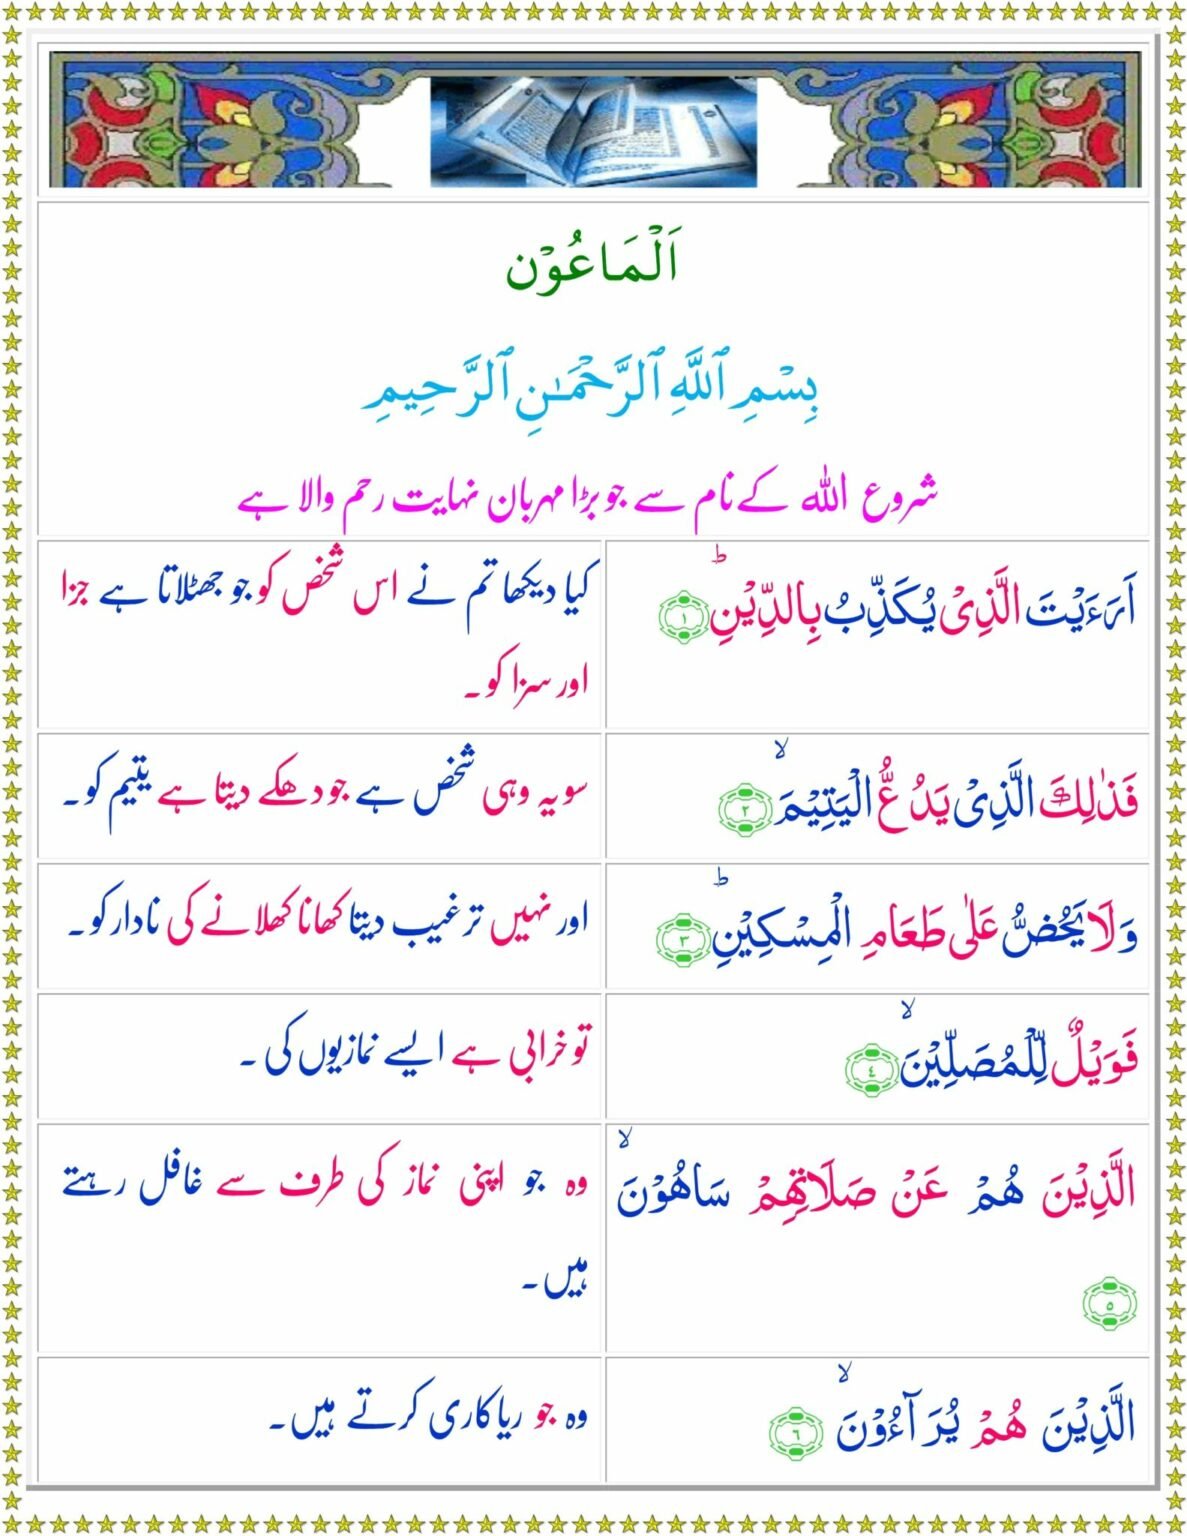 اَلْمَاعُوْن
بِسْمِ ٱللَّهِ ٱلرَّحْمَـٰنِ ٱلرَّحِيمِ
شروع اللہ کے نام سے جو بڑا مہربان نہایت رحم والا ہے
اَرَءَيْتَ الَّذِىْ يُكَذِّبُ بِالدِّيْنِؕ ﴿۱﴾
کیا دیکھا تم نے اس شخص کو جو جھٹلاتا ہے جزا
اور سزا کو۔
فَذٰلِكَ الَّذِىْ يَدُعُّ الْيَتِيْمَۙ ﴿۲﴾
سو یہ وہی شخص ہے جو دھکے دیتا ہے یتیم کو۔
وَلَا يَحُضُّ عَلٰى طَعَامِ الْمِسْكِيْنِؕ ﴿۳﴾
اور نہیں ترغیب دیتا کھانا کھلانے کی نادار کو۔
فَوَيْلٌ لِّلْمُصَلِّيْنَۙ ﴿٤﴾
تو خرابی ہے ایسے نمازیوں کی۔
الَّذِيْنَ هُمْ عَنْ صَلَاتِهِمْ سَاهُوْنَۙ
﴿۵﴾
وہ جو اپنی نماز کی طرف سے غافل رہتے
ہیں۔
الَّذِيْنَ هُمْ يُرَآءُوْنَۙ ﴿٦﴾
وہ جو ریاکاری کرتے ہیں۔